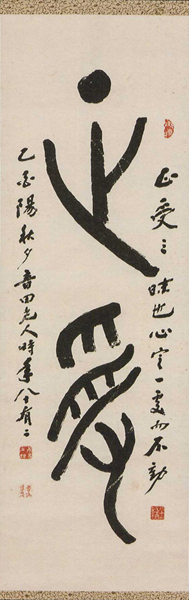 正受
正受三昧也心定一處而不動
陽秋夕 田老人時年八十有二